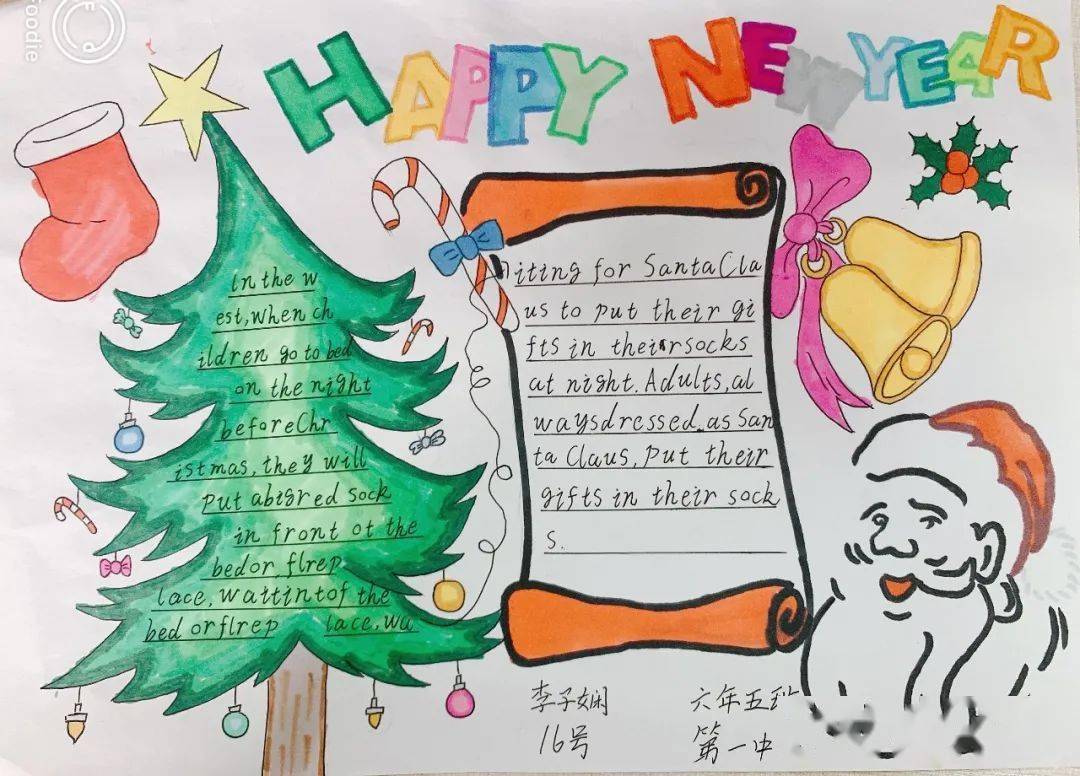 Foodie
HAPPY NEW YEAR
in the w
est, when ch
ildren go to bed
on the night
before Chr
istmas, they will
put abigred sock
in front ot the
bedor flrep
lace, waitintof the
bed orflrep lace, wa
iting for Santa Cla
us to put their gi
fts in their socks
at night. Adults, al
waysdressed as San
ta Claus, put their
gifts in their sock
s.
李子娴 六年五班
16号 第一中